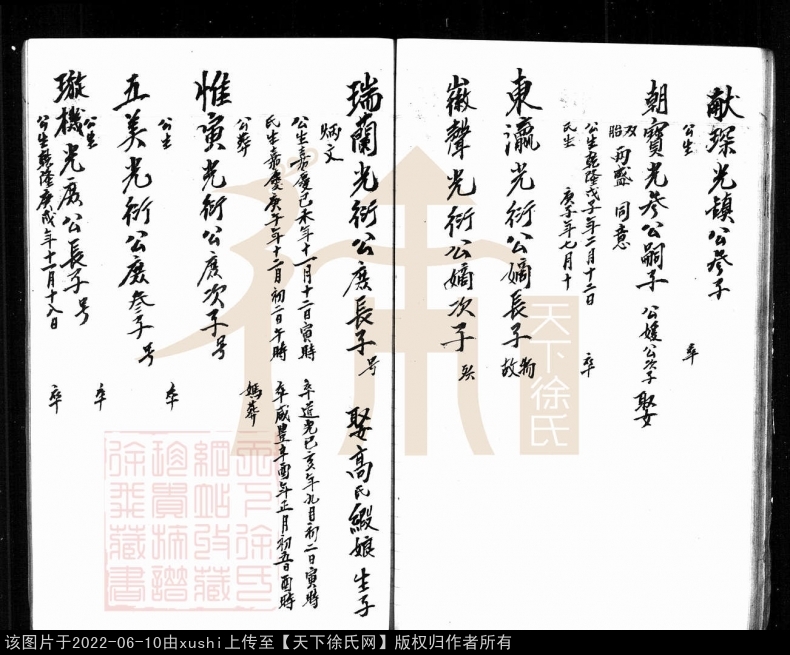 献琛光镇公叁子
公生 卒
朝寶光叁公嗣子 公媛公次子 娶
双胎 两盛 同意
公生乾隆戊子年二月十二日 卒
氏生 庚子年七月十
東瀛光衍公嫡長子 物故
徽聲光衍公嫡次子
瑞蘭光衍公庶長子 号 娶高氏緞娘 生子
炳文
公生嘉慶己未年十一月十二日寅時 卒道光己亥年九月初二日寅時
氏生嘉慶庚子年十二月初二日午時 卒咸豊辛酉年正月初五日酉時
公葬 媽葬
惟寅光衍公庶次子 号
公生 卒
五美光衍公庶叁子 号
公生 卒
璇機光 公長子 号
公生乾隆庚戌年十一月十八日 卒
天下徐氏
天下徐氏
網站收藏
珍貴族譜
徐我藏書
该图片于2022-06-10由xushi上传至【天下徐氏网】版权归作者所有